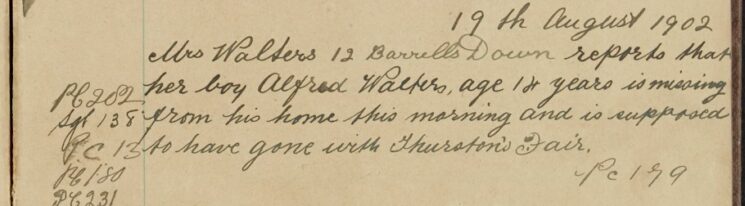 19th August 1902
Mrs Walters 12 Barrells Down reports that
her boy Alfred Walters, age 14 years is missing
from his home this morning and is supposed
to have gone with Thurston's Fair.
Pc 179
PC 202
Sgt 138
Pc 13
PC 180
PC 231